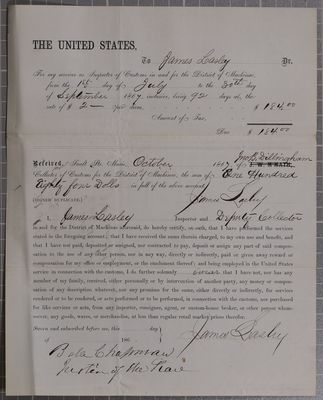 THE UNITED STATES,
To James Lasley Dr.
For my service as Inspector of Customs in and for the District of Machias,
from the 1st day of July to the 30th day
of September 1867 inclusive, being 92 days at, the
rate of $ 2 — per diem, $ 184.00
Amount of Tax,
Due $ 184.00
Received, October 1867 of
Collector of Customs for the District of Machias, the sum of One Hundred
Eighty four Dolls in full of the above account.
[SIGNED DUPLICATE.] James Lasley
I, James Lasley Inspector and Deputy Collector
in and for the District of Machias aforesaid, do hereby certify, on oath, that I have performed the services
stated in the foregoing account; that I have received the full sum therein charged, to my own use and benefit, and
that I have not paid, deposited or assigned, nor contracted to pay, deposit or assign any part of said compen-
sation to the use of any other person, nor in any way, directly or indirectly, paid or given any reward or
compensation for my office or employment, or the emoluments thereof; and being employed in the United States
service in connection with the customs, I do further solemnly swear that I have not, nor has any
member of my family, received, either personally or by intervention of another party, any money or compen-
sation of any description whatever, nor any promises for the same, either directly or indirectly, for services
rendered or to be rendered, or acts performed or to be performed, in connection with the customs, nor purchased
for like services or acts, from any importer, consignee, agent, or custom-house broker, or other person whom-
soever, any goods, wares, or merchandise, at less than regular retail market prices therefor.
Sworn and subscribed before me, this day
of 186 . James Lasley
Chapman
Justice of the Peace